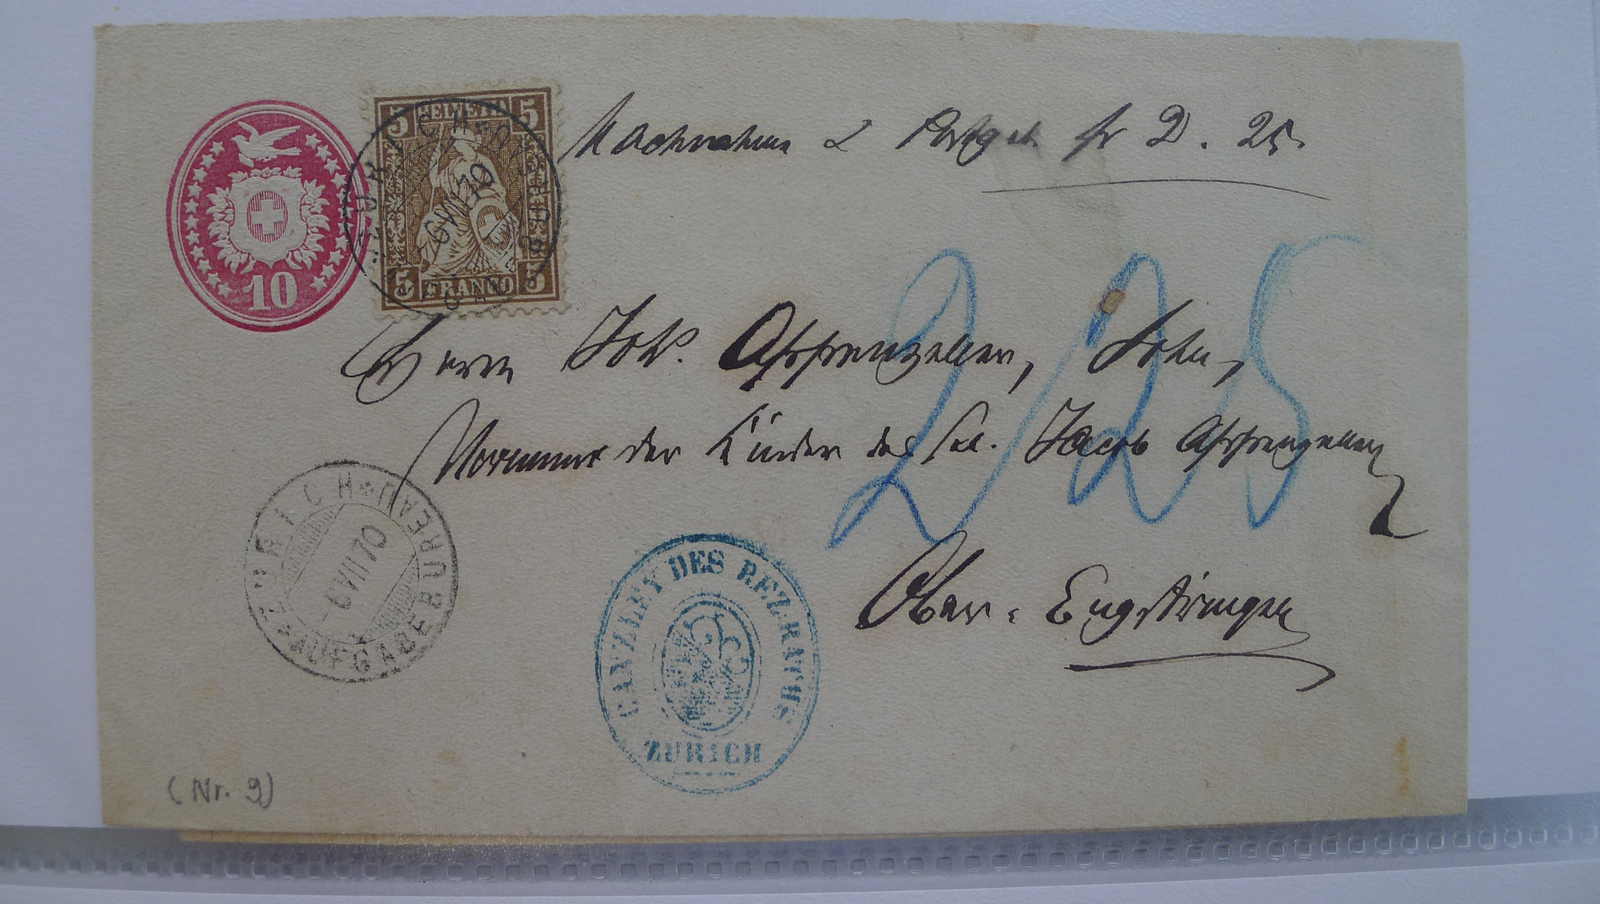 10
5 HELVETIA 5
5 FRANCO 5
ZÜRICH
6 VII 70
Nachnahme & Portgeb. fr 2. 25.
2 25
Herrn Joh. Appenzeller, Sohn,
der Kinder des sel. Jacob Appenzeller
Ober-Engstringen
ZÜRICH BUREAU
BRF. AUFGABE
6 VII 70
CANZLEY DES BEZ. RATHS
ZÜRICH
(Nr. 9)